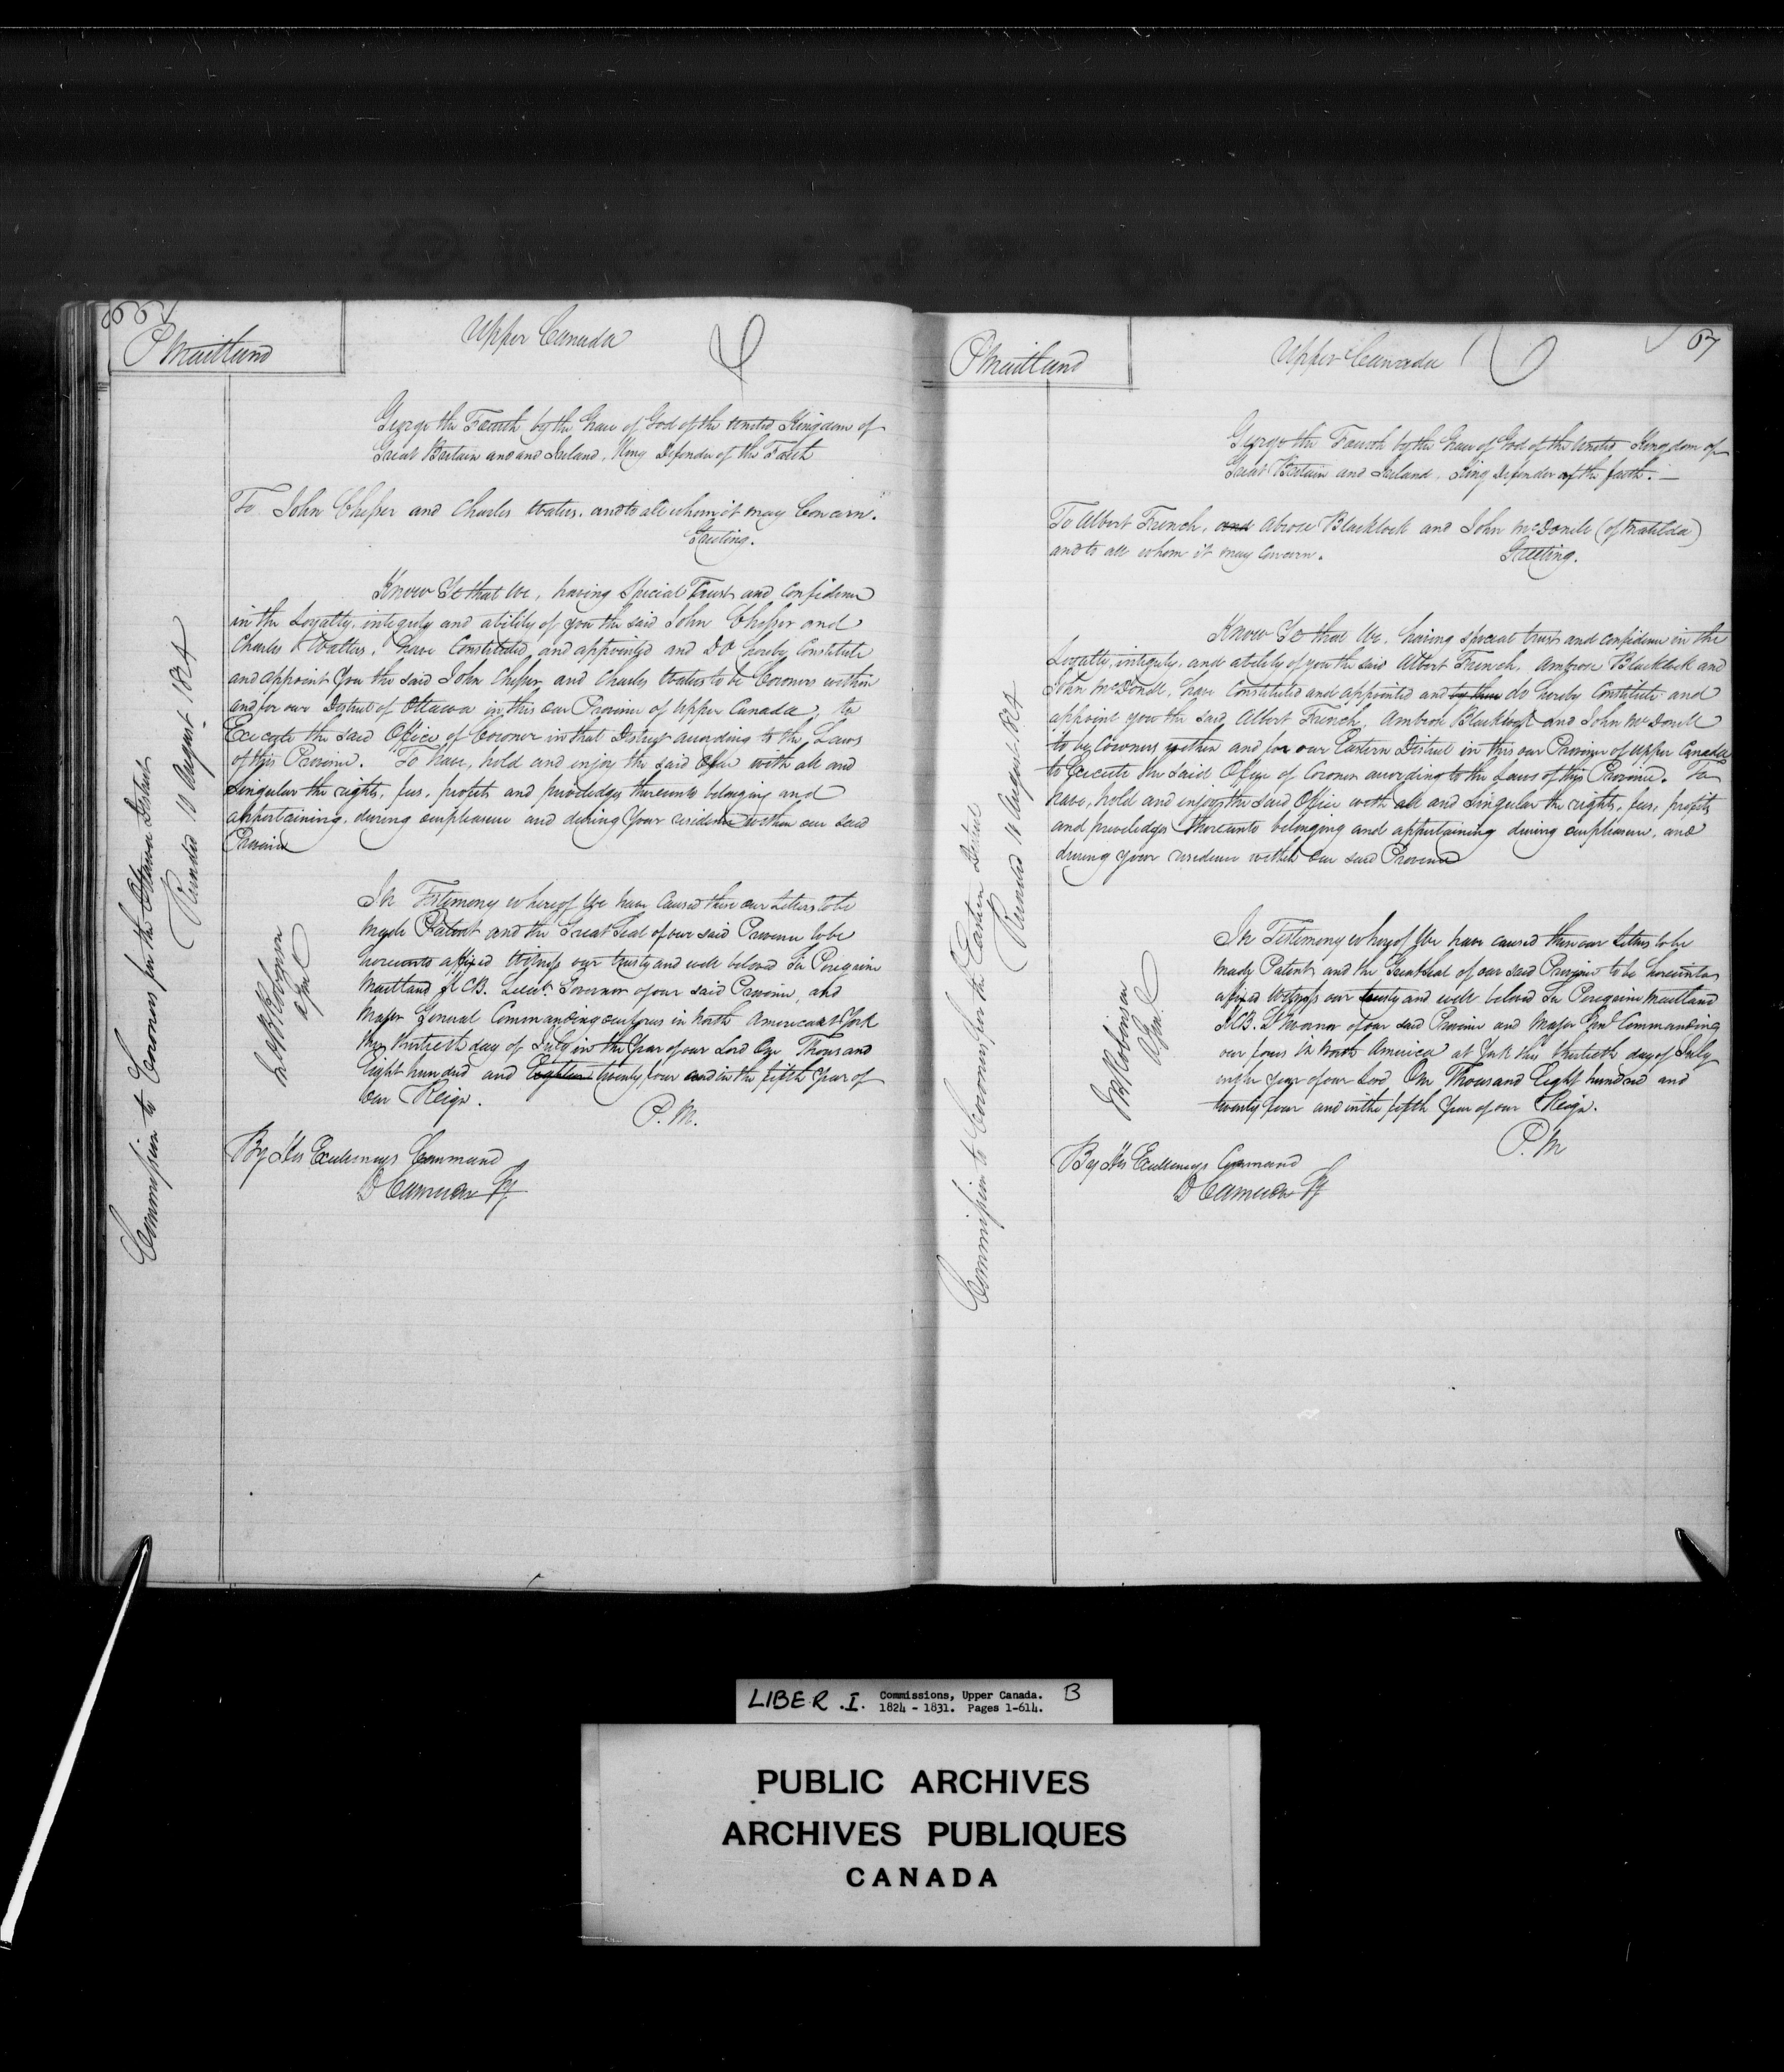 66
P Maitland
Upper Canada
George the Fourth by the Grace of God of the United Kingdom of
Great Britain and and Ireland, King Defender of the Faith
To John Chesser and Charles Waters, and to all whom it may Concern.
Greeting.
Know Ye that We, having Special Trust and Confidence
in the Loyalty, integrity and ability of you the said John Chesser and
Charles Waters, have Constituted and appointed and Do hereby Constitute
and appoint You the said John Chesser and Charles Waters to be Coroners within
and for our District of Ottawa in this our Province of Upper Canada, to
Execute the said Office of Coroner in that District according to the Laws
of this Province. To have, hold and enjoy the said Office with all and
Singular the rights, fees, profits and priviledges thereunto belonging and
appertaining, during our pleasure and during Your residence within our said
Province
In Testimony whereof We have Caused these our Letters to be
made Patent and the Great Seal of our said Province to be
hereunto affixed Witness our trusty and well beloved Sir Peregrine
Maitland K.C.B. Lieut. Governor of our said Province, and
Major General Commanding our forces in North America at York
this thirtieth day of July in the Year of our Lord One Thousand
Eight hundred and Eighteen twenty four and in the fifth Year of
our Reign.
P.M.
By His Excellencys Command
D Cameron Sy
Jno B Robinson
A Genl
Commission to Coroners for the Ottawa District
Recorded 10 August 1824
67
P Maitland
Upper Canada
George the Fourth by the Grace of God of the United Kingdom of
Great Britain and Ireland, King Defender of the faith.—
To Albert French, and Abrose Blacklock and John McDonell (of Matilda)
and to all whom it may Concern. Greeting.
Know Ye that We, having special trust and confidence in the
Loyalty, integrity, and ability of you the said Albert French, Ambrose Blacklock and
John McDonell, have Constituted and appointed and by these do hereby Constitute and
appoint you the said Albert French, Ambrose Blacklock and John McDonell
to be Coroners within and for our Eastern District in this our Province of Upper Canada
to Execute the said Office of Coroner according to the Laws of this Province. To
have, hold and enjoy the said Office with all and Singular the rights, fees, profits
and priviledges thereunto belonging and appertaining during our pleasure, and
during your residence within our said Province
In Testimony whereof We have caused these our Letters to be
made Patent and the Great Seal of our said Province to be hereunto
affixed Witness our trusty and well beloved Sir Peregrine Maitland
K.C.B. Lt Governor of our said Province and Major Genl Commanding
our forces in North America at York this thirtieth day of July
in the Year of our Lord One Thousand Eight hundred and
twenty four and in the fifth Year of our Reign.
P.M
By His Excellencys Command
D Cameron Sy
Jno B Robinson
A Genl
Commission to Coroners for the Eastern District
Recorded 10 August 1824
LIBER .I. Commissions, Upper Canada. B
1824 - 1831. Pages 1-614.
PUBLIC ARCHIVES
ARCHIVES PUBLIQUES
CANADA